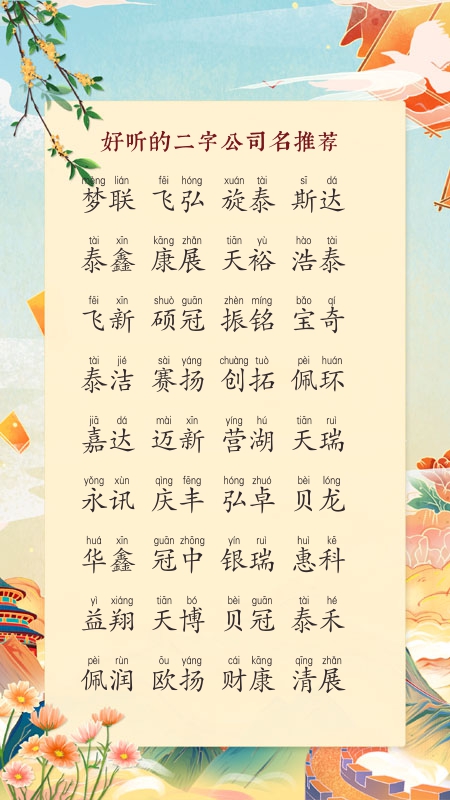 好听的二字公司名推荐
mèng lián fēi hóng xuán tài sī dá
梦联 飞弘 旋泰 斯达
tài xīn kāng zhǎn tiān yù hào tài
泰鑫 康展 天裕 浩泰
fēi xīn shuò guān zhèn míng bǎo qí
飞新 硕冠 振铭 宝奇
tài jié sài yáng chuàng tuò pèi huán
泰洁 赛扬 创拓 佩环
jiā dá mài xīn yíng hú tiān ruì
嘉达 迈新 营湖 天瑞
yǒng xùn qìng fēng hóng zhuó bèi lóng
永讯 庆丰 弘卓 贝龙
huá xīn guān zhōng yín ruì huì kē
华鑫 冠中 银瑞 惠科
yì xiáng tiān bó bèi guān tài hé
益翔 天博 贝冠 泰禾
pèi rùn ōu yáng cái kāng qīng zhǎn
佩润 欧扬 财康 清展